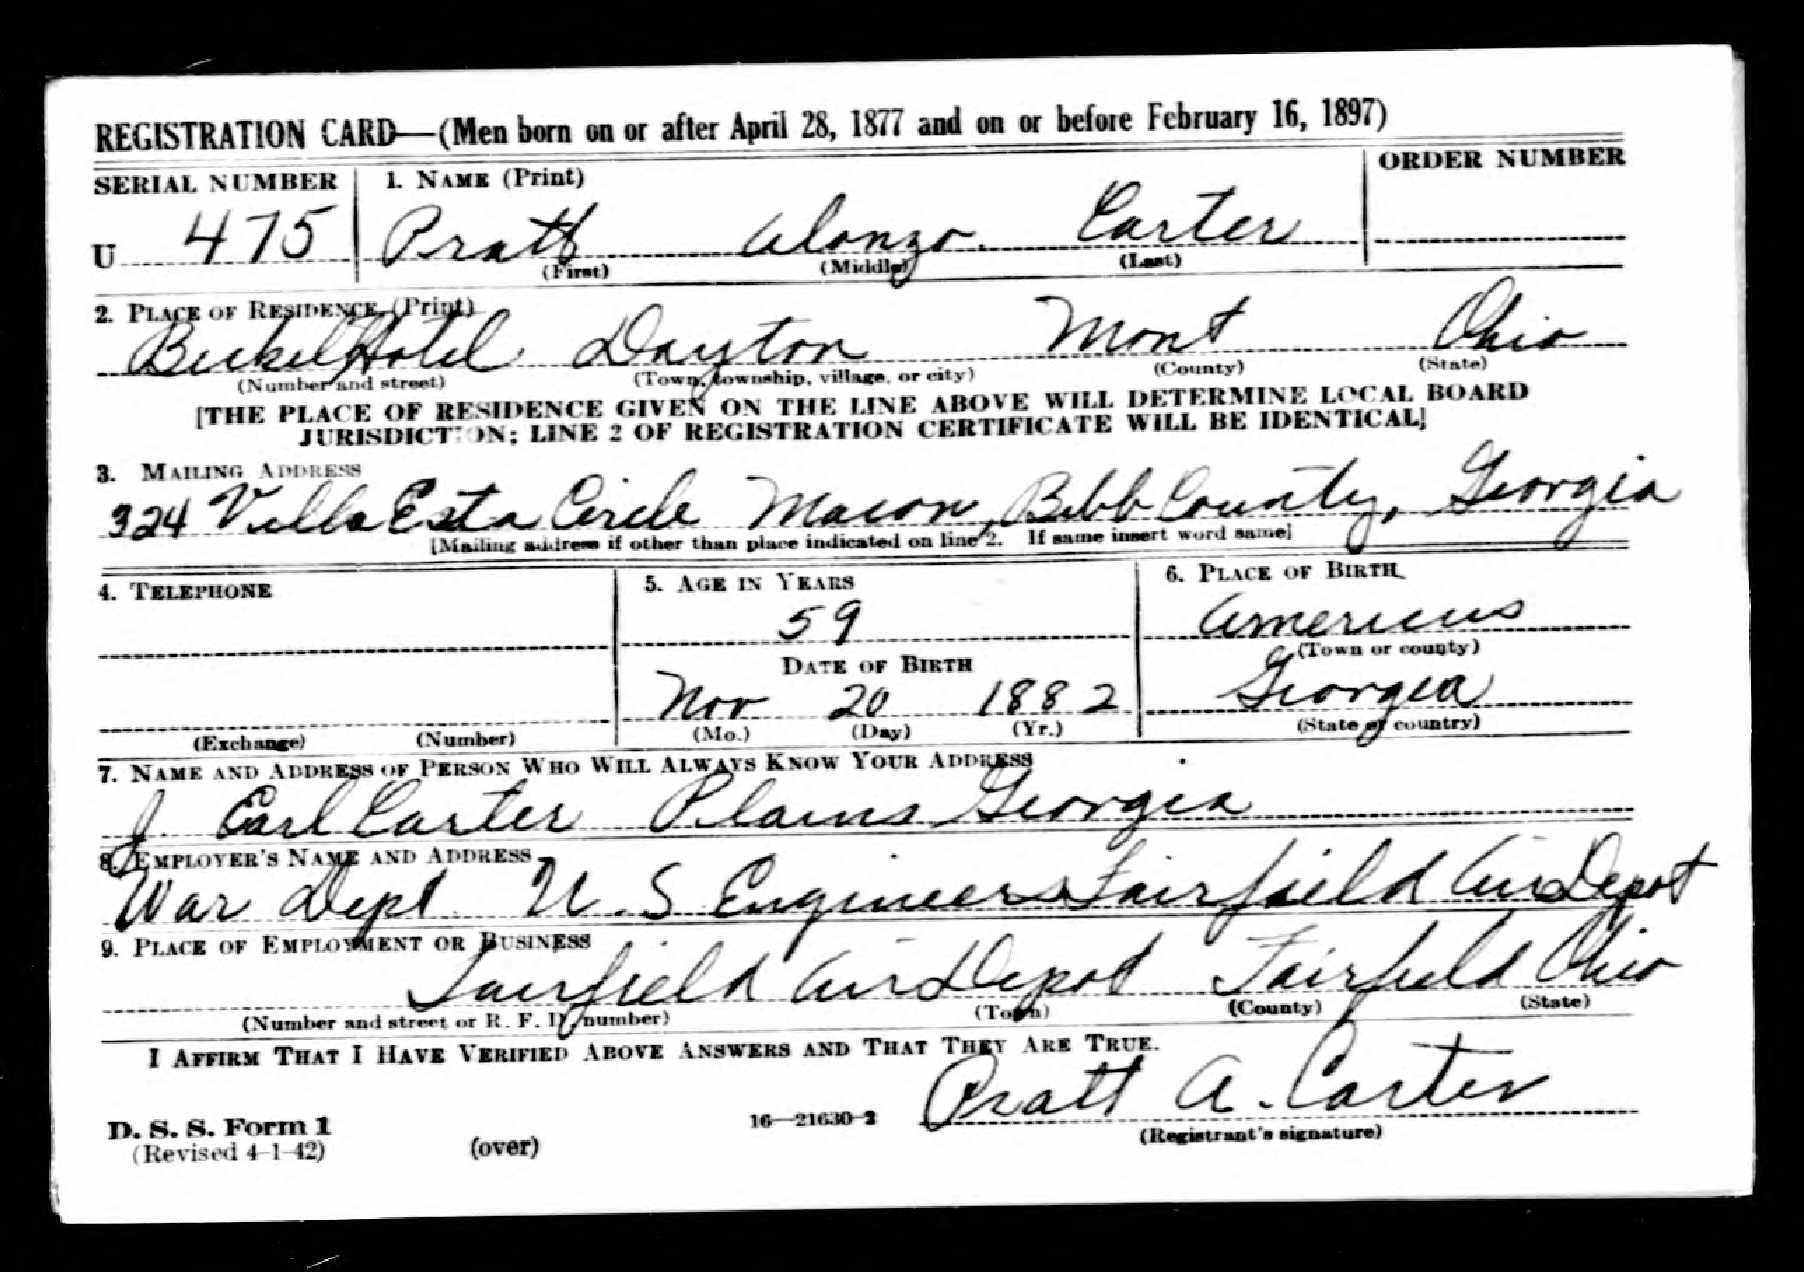 REGISTRATION CARD—(Men born on or after April 28, 1877 and on or before February 16, 1897)
SERIAL NUMBER 1. NAME (Print) ORDER NUMBER
U 475 Pratt Alonzo Carter
(First) (Middle) (Last)
2. PLACE OF RESIDENCE (Print)
Beckel Hotel Dayton Mont Ohio
(Number and street) (Town, township, village, or city) (County) (State)
[THE PLACE OF RESIDENCE GIVEN ON THE LINE ABOVE WILL DETERMINE LOCAL BOARD
JURISDICTION; LINE 2 OF REGISTRATION CERTIFICATE WILL BE IDENTICAL]
3. MAILING ADDRESS
324 Villa Esta Circle Macon, Bibb County, Georgia
[Mailing address if other than place indicated on line 2. If same insert word same]
4. TELEPHONE 5. AGE IN YEARS 6. PLACE OF BIRTH
59 Americus
(Town or county)
DATE OF BIRTH
Nov 20 1882 Georgia
(Exchange) (Number) (Mo.) (Day) (Yr.) (State or country)
7. NAME AND ADDRESS OF PERSON WHO WILL ALWAYS KNOW YOUR ADDRESS
J. Earl Carter Plains Georgia
8. EMPLOYER'S NAME AND ADDRESS
War Dept. U.S Engineers Fairfield Air Depot
9. PLACE OF EMPLOYMENT OR BUSINESS
Fairfield Air Depot Fairfield Ohio
(Number and street or R. F. D. number) (Town) (County) (State)
I AFFIRM THAT I HAVE VERIFIED ABOVE ANSWERS AND THAT THEY ARE TRUE.
Pratt A. Carter
D. S. S. Form 1 16—21630-2
(Revised 4-1-42) (over) (Registrant's signature)